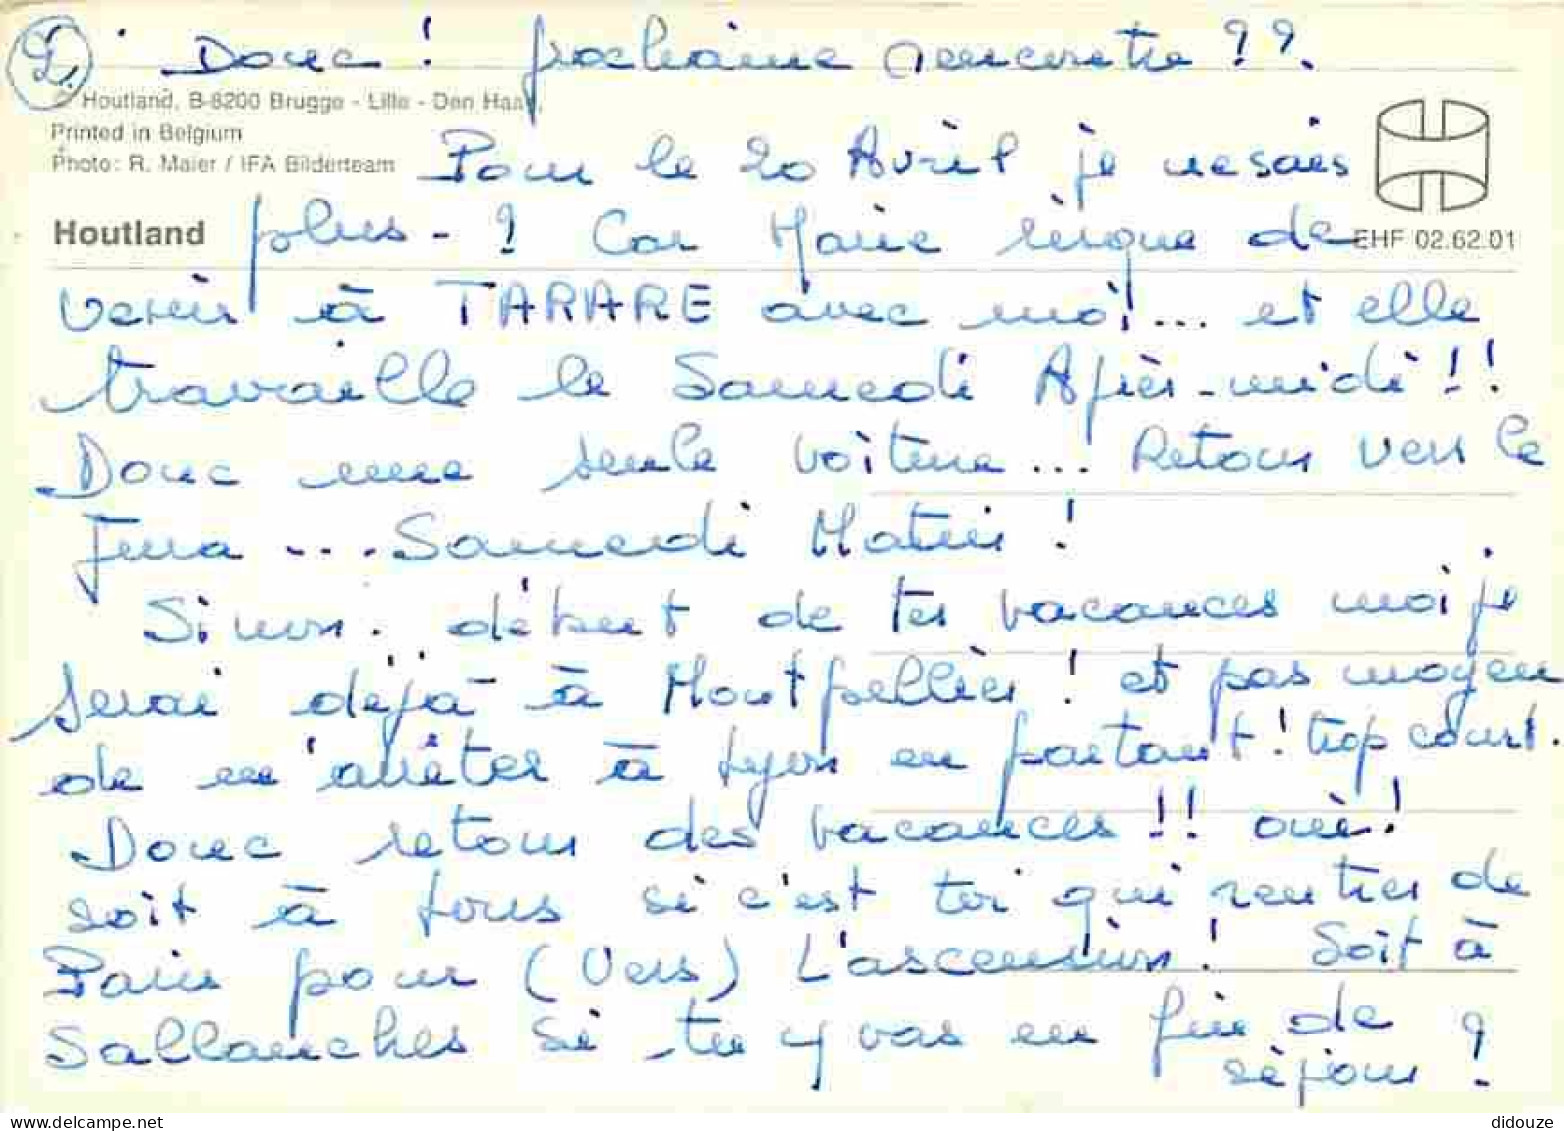 2. Donc ! prochaine rencontre ??.
© Houtland, B-8200 Brugge - Lille - Den Haag.
Printed in Belgium
Photo: R. Maier / IFA Bilderteam
Pour le 20 Avril je ne sais
Houtland
plus - ? Car Marie risque de
EHF 02.62.01
venir à TARARE avec moi... et elle
travaille le Samedi Après-midi !!
Donc une seule voiture... Retour vers le
Jura ... Samedi Matin !
Sinon. début de tes vacances moi je
serai déjà à Montpellier ! et pas moyen
de m'arrêter à Lyon en partant ! trop court.
Donc retour des vacances !! oui !
soit à Lons si c'est toi qui rentres de
Paris pour (Vers) L'ascension ! Soit à
Sallanches si tu y vas en fin de
séjour ?
didouze